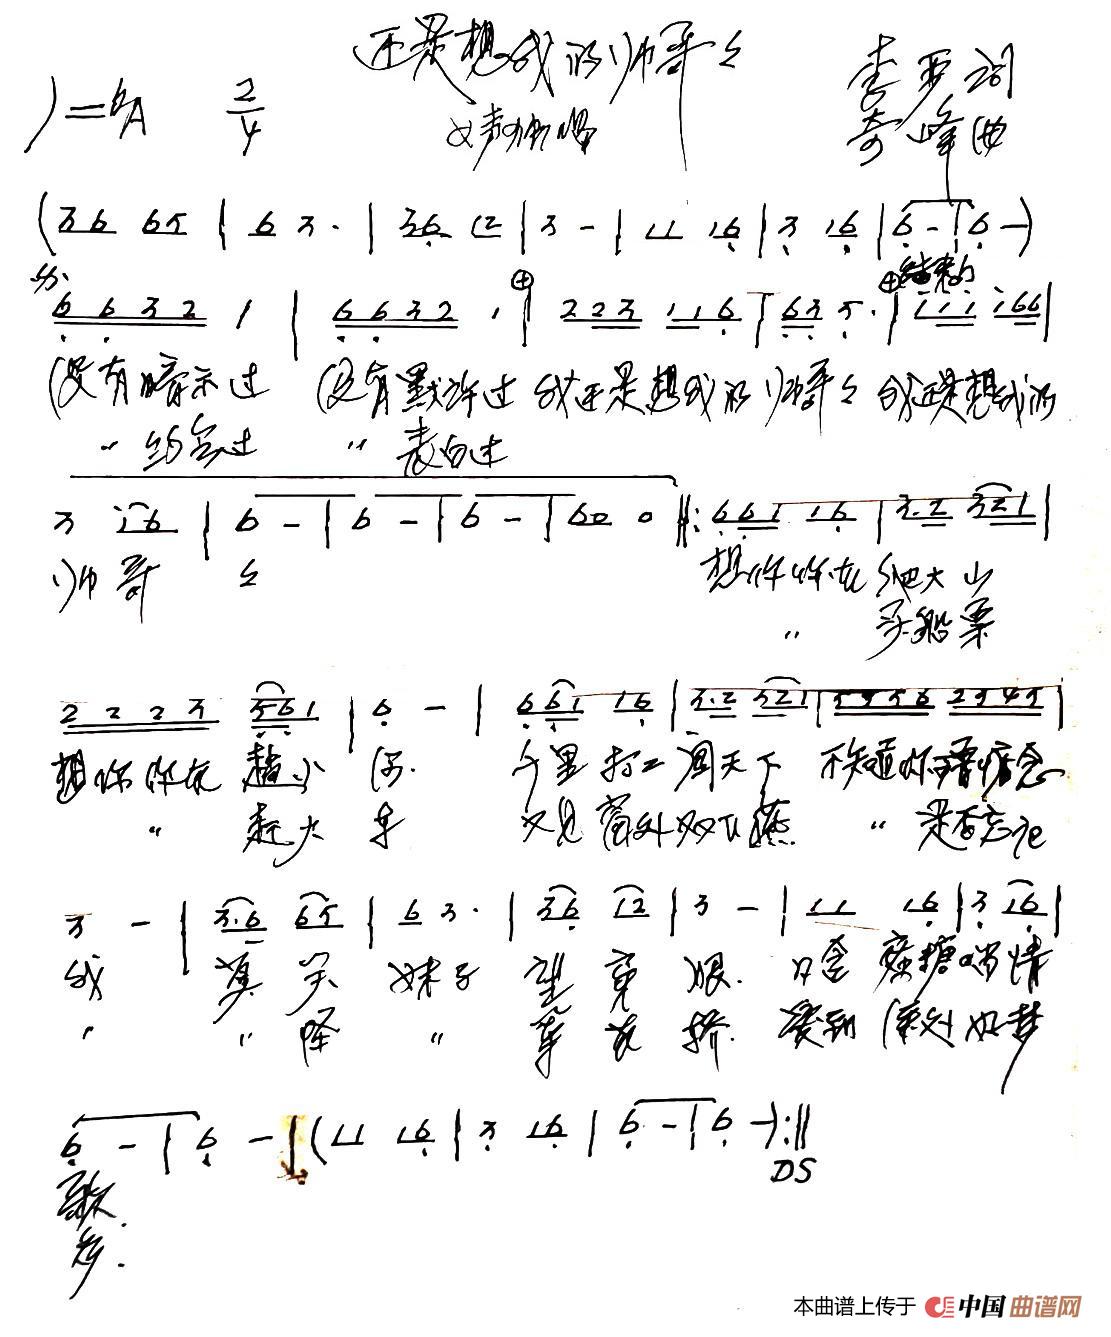 还是想我的帅哥哥
女声独唱
1=bA 2/4
李 词
奇峰曲
(36 65 | 6 3· | 36 12 | 3 - | 11 16 | 3 16 | 6 - | 6 -)
结束句
6632 1 | 6632 1 | 223 116 | 63 5· | 111 166 |
没有暗示过 没有默许过 我还是想我的帅哥哥 我还是想我的
〃 约会过 〃 表白过
3 16 | 6 - | 6 - | 6 - | 60 0 ‖: 661 16 | 3·2 321 |
帅哥哥 想你你在 爬大山
〃 买船票
2223 561 | 6 - | 661 16 | 3·2 321 | 5556 2345 |
想你你在 千里打工闯天下 不知道你否惦念
〃 赶大车 又见窗外双飞燕 〃 是否忘记
3 - | 3·6 65 | 6 3· | 36 12 | 3 - | 11 16 | 3 16 |
我 妹子望穿眼 口含蜜糖 情
〃 〃 〃
6 - | 6 - | (11 16 | 3 16 | 6 - | 6 -) :‖
DS
歌
本曲谱上传于 中国曲谱网